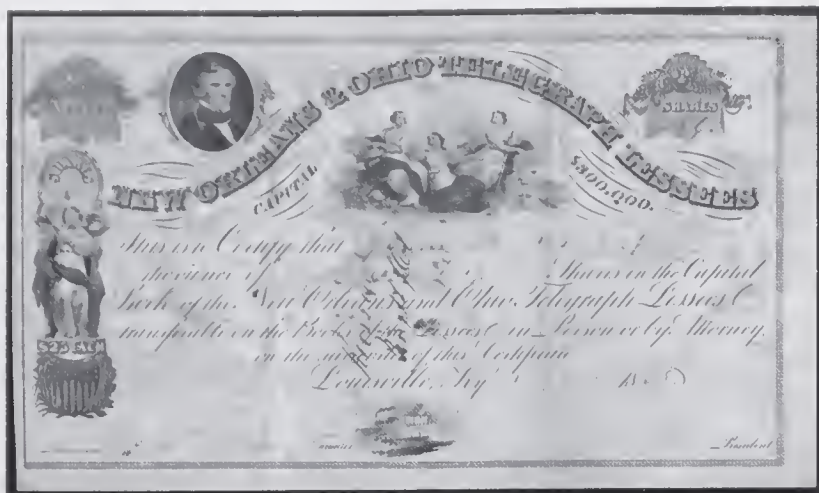 NEW ORLEANS & OHIO TELEGRAPH LESSEES
SHARES
CAPITAL $300,000.
SHARES
This is to Certify that
the owner of Shares in the Capital
Stock of the New Orleans and Ohio Telegraph Lessees
transferable on the Books of the Lessees in Person or by Attorney
on the surrender of this Certificate
$25 EACH
Louisville, Ky 18
President